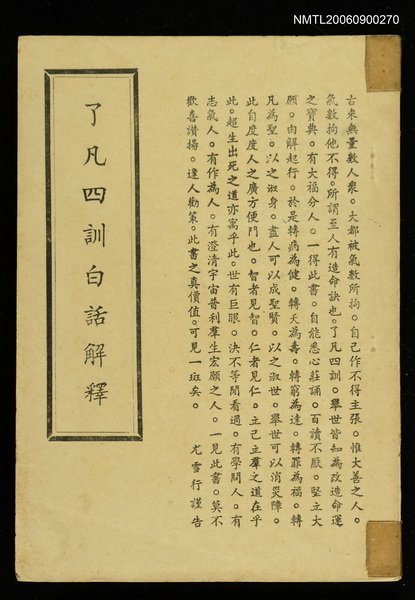 NMTL20060900270
古來無量數人衆。大都被氣數所拘。自己作不得主張。惟大善之人。
氣數拘他不得。所謂至人有造命訣也。了凡四訓。舉世皆知為改造命運
之寶典。有大福分人。一得此書。自能悉心莊誦。百讀不厭。堅立大
願。由解起行。於是轉病為健。轉夭為壽。轉窮為達。轉罪為福。轉
凡為聖。以之淑身。盡人可以成聖賢。以之淑世。舉世可以消災障。
此自度度人之廣方便門也。智者見智。仁者見仁。立己立羣之道在乎
此。超生出死之道亦寓乎此。世有巨眼。決不等閒看過。有學問人。有
志氣人。有作為人。有澄清宇宙普利羣生宏願之人。一見此書。莫不
歡喜讃揚。逢人勸策。此書之真價值。可見一斑矣。
尤雪行謹告
了凡四訓白話解釋